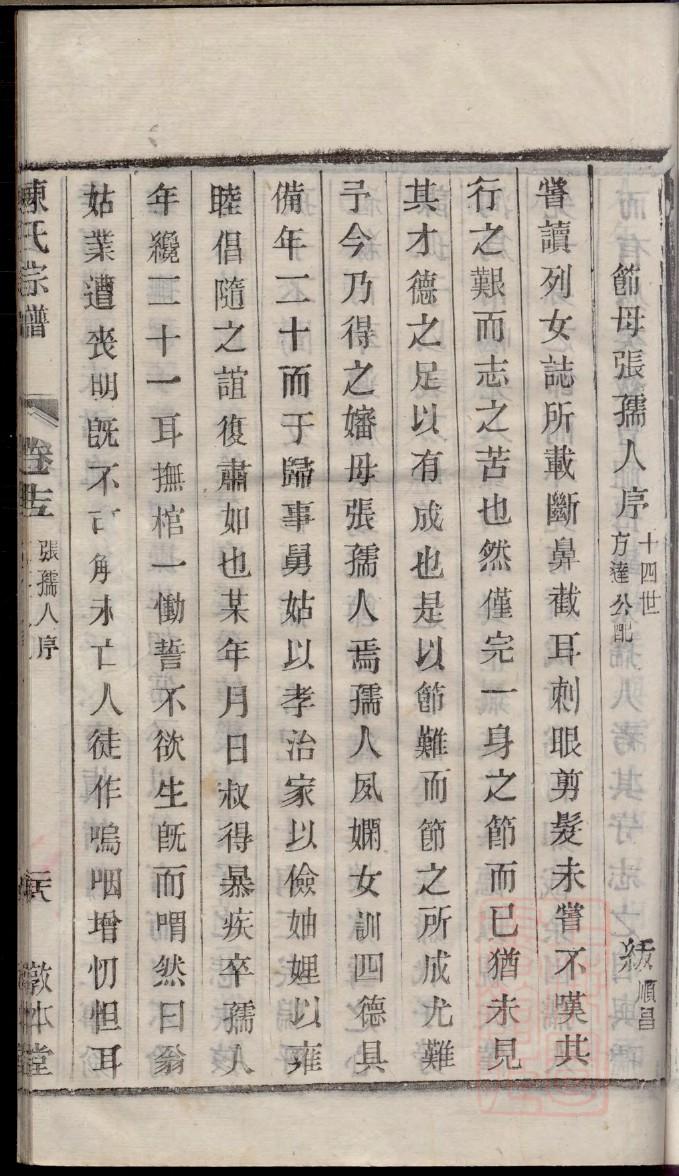 節母張孺人序 十四世方達公配
姪順昌
嘗讀列女誌所載斷鼻截耳刺眼剪髮未嘗不嘆其
行之艱而志之苦也然僅完一身之節而已猶未見
其才德之足以有成也是以節難而節之所成尤難
予今乃得之嬸母張孺人焉孺人夙嫻女訓四德具
備年二十而于歸事舅姑以孝治家以儉妯娌以雍
睦倡隨之誼復肅如也某年月日叔得暴疾卒孺人
年纔二十一耳撫棺一慟誓不欲生旣而喟然曰翁
姑業遭喪明旣不可再未亡人徒作嗚咽增忉怛耳
陳氏宗譜
張孺人序
敦本堂